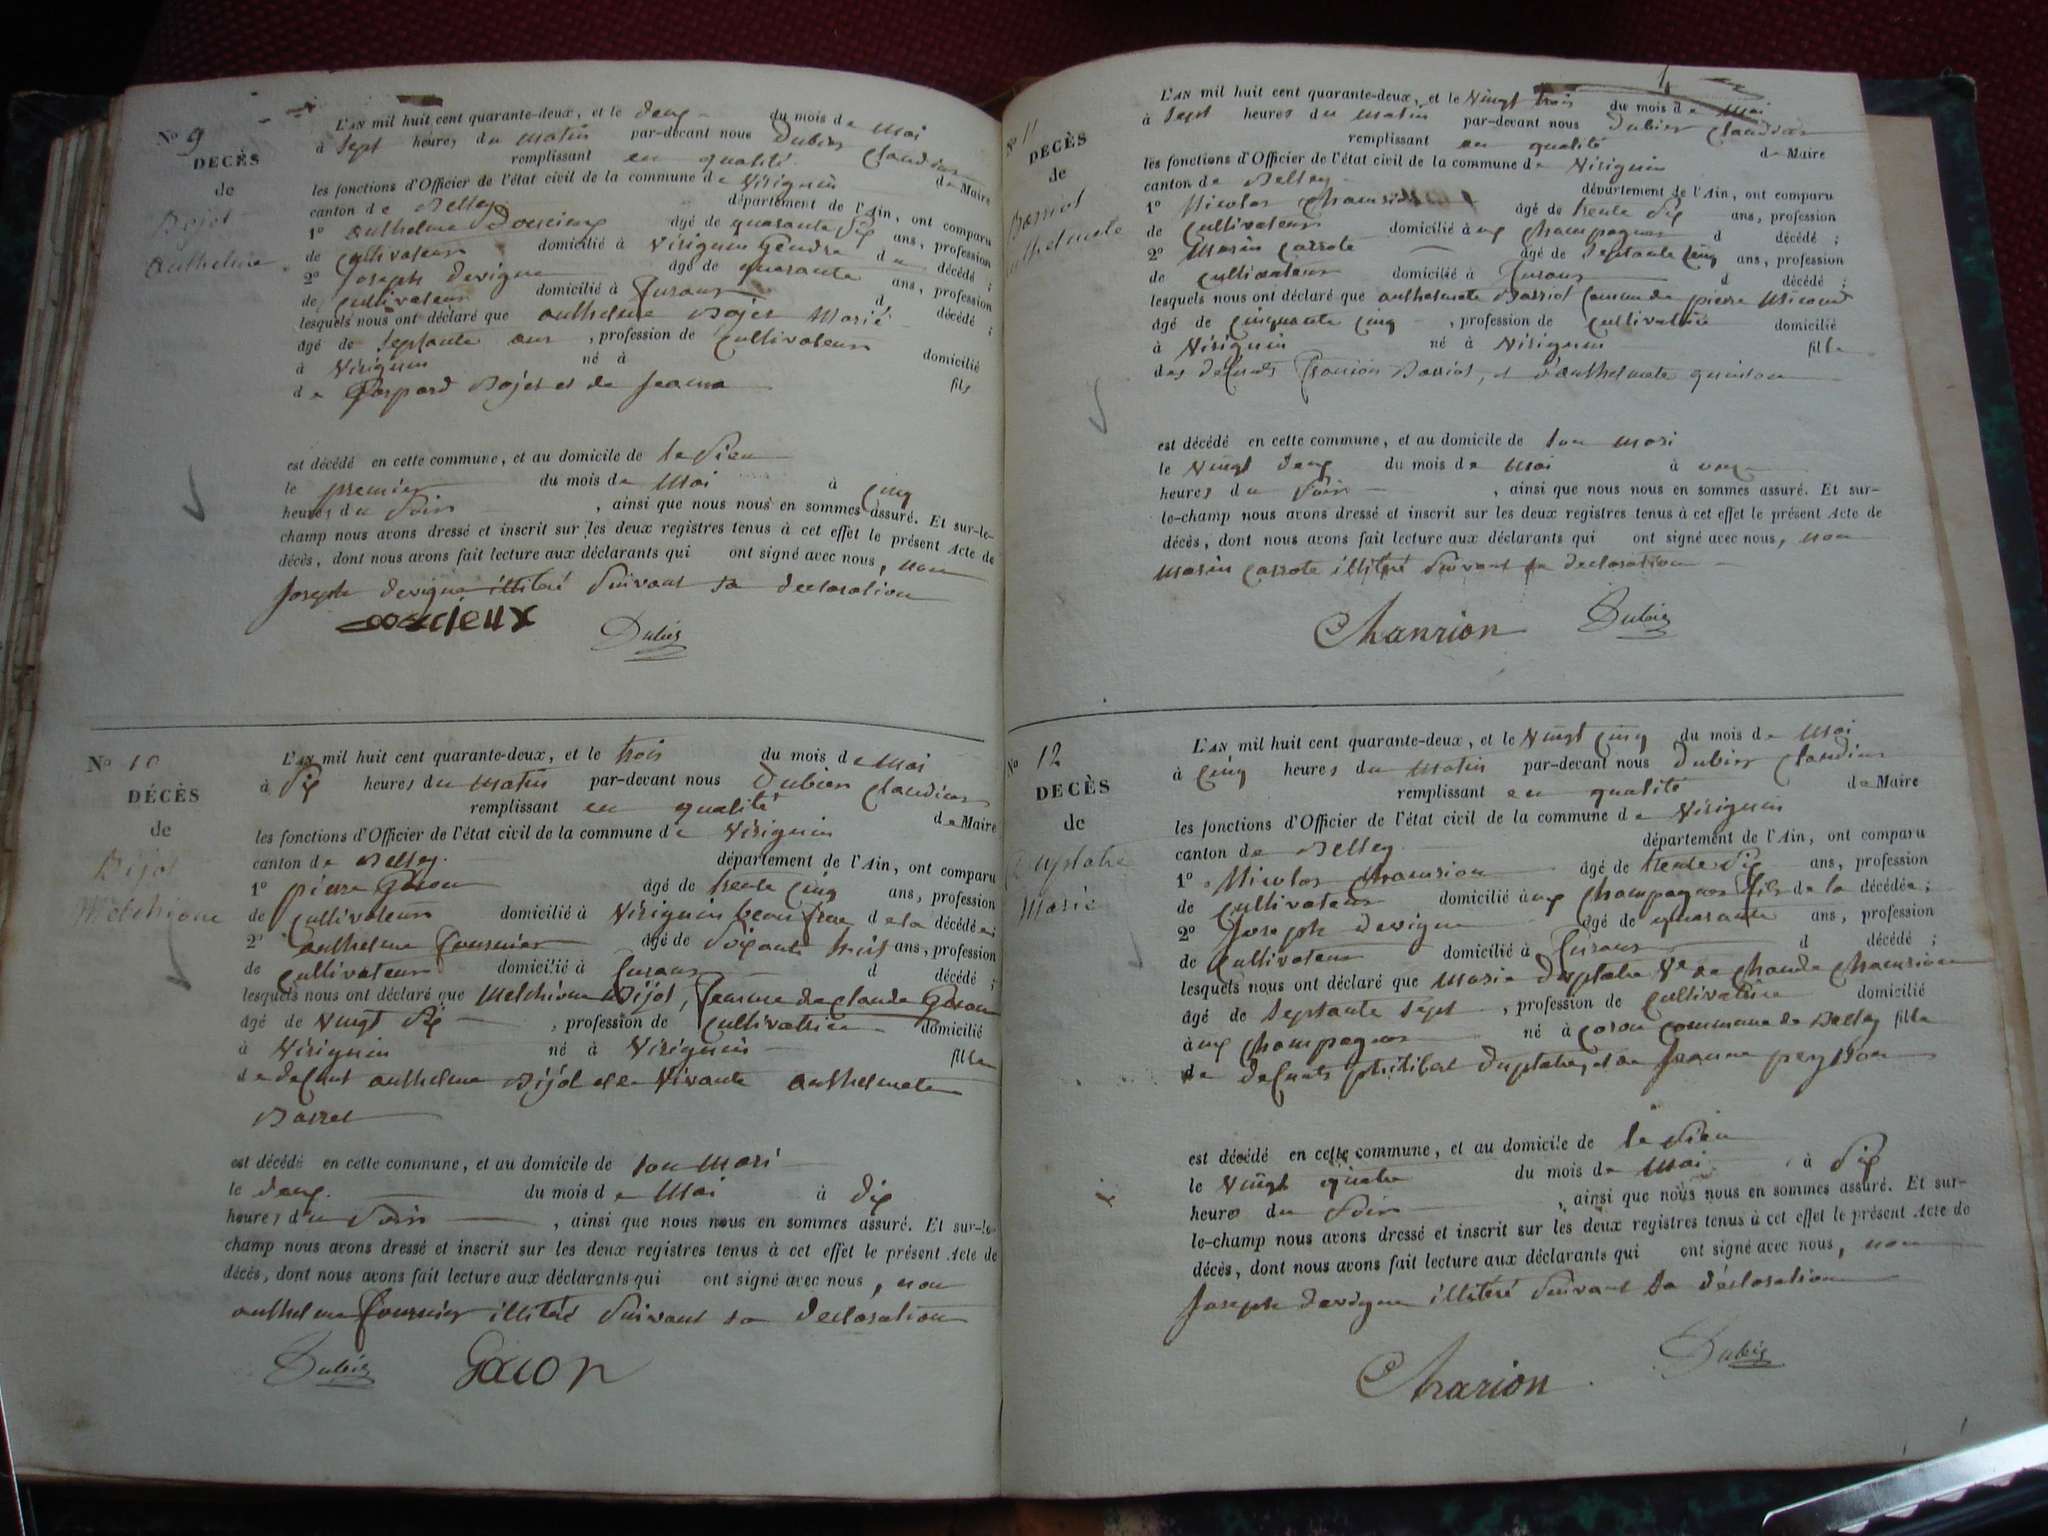 No 9
DECÈS
de
Bejot
Anthelme
L'AN mil huit cent quarante-deux, et le deux du mois de Mai
à Sept heures du matin par-devant nous Dubier Claudius
remplissant en qualité de Maire
les fonctions d'Officier de l'état civil de la commune de Virignin
canton de Belley département de l'Ain, ont comparu
1° anthelme Doucieux âgé de quarante six ans, profession
de Cultivateur domicilié à Virignin Gendre du décédé ;
2° Joseph devigne âgé de quarante ans, profession
de Cultivateur domicilié à Cusans d décédé ;
lesquels nous ont déclaré que anthelme Bojet Marié
âgé de Septante ans, profession de Cultivateur domicilié
à Virignin né à fils
de Gaspard Bojet et de Jeanna
est décédé en cette commune, et au domicile de le Sien
le premier du mois de Mai à Cinq
heures du Soir, ainsi que nous nous en sommes assuré. Et sur-le-
champ nous avons dressé et inscrit sur les deux registres tenus à cet effet le présent Acte de
décès, dont nous avons fait lecture aux déclarants qui ont signé avec nous, non
Joseph devigne illitéré Suivant sa declaration
Doucieux Dubier
No 10
DÉCÈS
de
Bijot
Melchionne
L'AN mil huit cent quarante-deux, et le trois du mois de Mai
à Six heures du matin par-devant nous Dubier Claudius
remplissant en qualité de Maire
les fonctions d'Officier de l'état civil de la commune de Virignin
canton de Belley département de l'Ain, ont comparu
1° pierre Gacon âgé de trente Cinq ans, profession
de Cultivateur domicilié à Virignin beau frère de la décédée ;
2° anthelme fournier âgé de Soixante trois ans, profession
de Cultivateur domicilié à Cusans d décédé ;
lesquels nous ont déclaré que Melchionne Bijot, femme de Claude Gacon
âgé de Vingt Six, profession de Cultivatrice domicilié
à Virignin né à Virignin fille
de defunt anthelme Bijot et de Vivante anthelmete
Barret
est décédé en cette commune, et au domicile de son Mari
le deux du mois de Mai à dix
heures du Soir, ainsi que nous nous en sommes assuré. Et sur-le-
champ nous avons dressé et inscrit sur les deux registres tenus à cet effet le présent Acte de
décès, dont nous avons fait lecture aux déclarants qui ont signé avec nous, non
anthelme fournier illitéré Suivant sa declaration
Dubier Gacon
No 11
DECÈS
de
Barriot
anthelmete
L'AN mil huit cent quarante-deux, et le Vingt trois du mois de Mai
à Sept heures du matin par-devant nous Dubier Claudius
remplissant en qualité de Maire
les fonctions d'Officier de l'état civil de la commune de Virignin
canton de Belley département de l'Ain, ont comparu
1° Nicolas Chanrion âgé de trente Six ans, profession
de Cultivateur domicilié à aux Champagnes d décédé ;
2° Marin Carrote âgé de Septante Cinq ans, profession
de Cultivateur domicilié à Cusans d décédé ;
lesquels nous ont déclaré que anthelmete Barriot femme de pierre Micoud
âgé de Cinquante Cinq, profession de Cultivatrice domicilié
à Virignin né à Virignin fille
des defunts François Barriot, et d'anthelmete quinson
est décédé en cette commune, et au domicile de son Mari
le Vingt deux du mois de Mai à onze
heures du Soir, ainsi que nous nous en sommes assuré. Et sur-
le-champ nous avons dressé et inscrit sur les deux registres tenus à cet effet le présent Acte de
décès, dont nous avons fait lecture aux déclarants qui ont signé avec nous, non
Marin Carrote illitéré Suivant sa declaration
Chanrion Dubier
No 12
DECÈS
de
Duplatre
Marie
L'AN mil huit cent quarante-deux, et le Vingt Cinq du mois de Mai
à Cinq heures du Matin par-devant nous Dubier Claudius
remplissant en qualité de Maire
les fonctions d'Officier de l'état civil de la commune de Virignin
canton de Belley département de l'Ain, ont comparu
1° Nicolas Chanrion âgé de trente Six ans, profession
de Cultivateur domicilié à aux Champagnes fils de la décédée ;
2° Joseph devigne âgé de quarante ans, profession
de Cultivateur domicilié à Cusans d décédé ;
lesquels nous ont déclaré que Marie duplatre Ve de Claude Chanrion
âgé de Septante Sept, profession de Cultivatrice domicilié
à aux Champagnes né à Coron Commune de Belley fille
de defunts philibert duplatre, et de Jeanne peysson
est décédé en cette commune, et au domicile de le Sien
le Vingt quatre du mois de Mai à Six
heures du Soir, ainsi que nous nous en sommes assuré. Et sur-
le-champ nous avons dressé et inscrit sur les deux registres tenus à cet effet le présent Acte de
décès, dont nous avons fait lecture aux déclarants qui ont signé avec nous, non
Joseph devigne illitéré Suivant sa déclaration
Chanrion Dubier